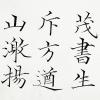 茂書生
斥方遒
山激揚